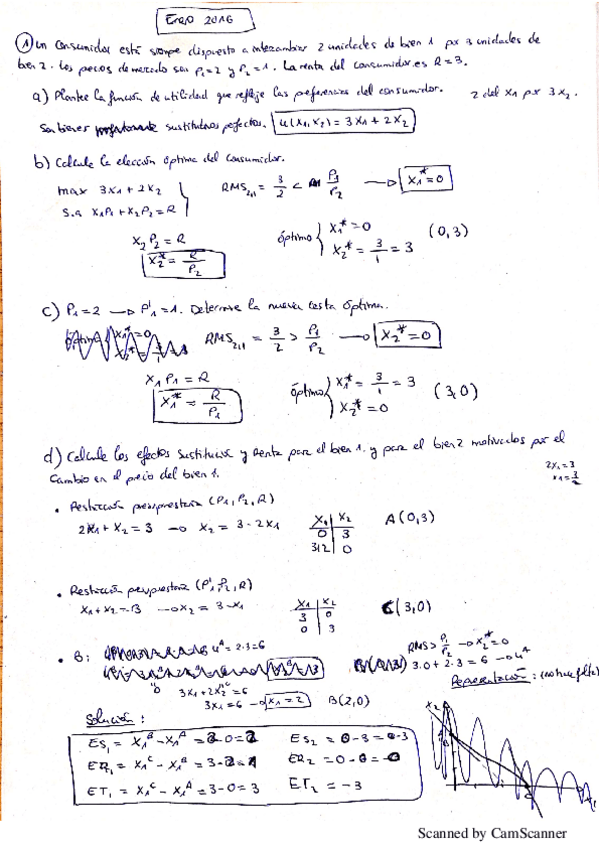 Enero 2016
① Un consumidor está siempre dispuesto a intercambiar 2 unidades de bien 1 por 3 unidades de
bien 2. Los precios de mercado son P₁=2 y P₂=1. La renta del consumidor es R=3.
a) Plantee la función de utilidad que refleje las preferencias del consumidor. 2 del x₁ por 3 x₂.
Son bienes sustitutivos perfectos. u(x₁,x₂) = 3x₁ + 2x₂
b) Calcule la elección óptima del consumidor.
max 3x₁ + 2x₂
s.a x₁P₁ + x₂P₂ = R
RMS₂,₁ = 3/2 < P₁/P₂ → x₁* = 0
x₂P₂ = R
x₂* = R/P₂
óptimo { x₁* = 0
x₂* = 3/1 = 3
(0,3)
c) P₁=2 → P'₁=1. Determine la nueva cesta óptima.
RMS₂,₁ = 3/2 > P₁/P₂ → x₂* = 0
x₁P₁ = R
x₁* = R/P₁
óptimo { x₁* = 3/1 = 3
x₂* = 0
(3,0)
d) Calcule los efectos sustitución y renta para el bien 1 y para el bien 2 motivados por el
cambio en el precio del bien 1.
2x₁=3
x₁=3/2
• Restricción presupuestaria (P₁, P₂, R)
2x₁ + x₂ = 3 → x₂ = 3 - 2x₁
x₁ | x₂
0 | 3
3/2 | 0
A(0,3)
• Restricción presupuestaria (P'₁, P₂, R)
x₁ + x₂ = 3 → x₂ = 3 - x₁
x₁ | x₂
3 | 0
0 | 3
C(3,0)
• B:
uᴬ = 2·3 = 6
RMS > P₁/P₂ → x₂* = 0
3·0 + 2·3 = 6 → uᴬ
3x₁ + 2x₂ = 6
3x₁ = 6 → x₁ = 2
B(2,0)
Representación:
Solución:
ES₁ = x₁ᴮ - x₁ᴬ = 2-0 = 2
ES₂ = 0-3 = -3
ER₁ = x₁ᶜ - x₁ᴮ = 3-2 = 1
ER₂ = 0-0 = 0
ET₁ = x₁ᶜ - x₁ᴬ = 3-0 = 3
ET₂ = -3
x₂
x₁
Scanned by CamScanner